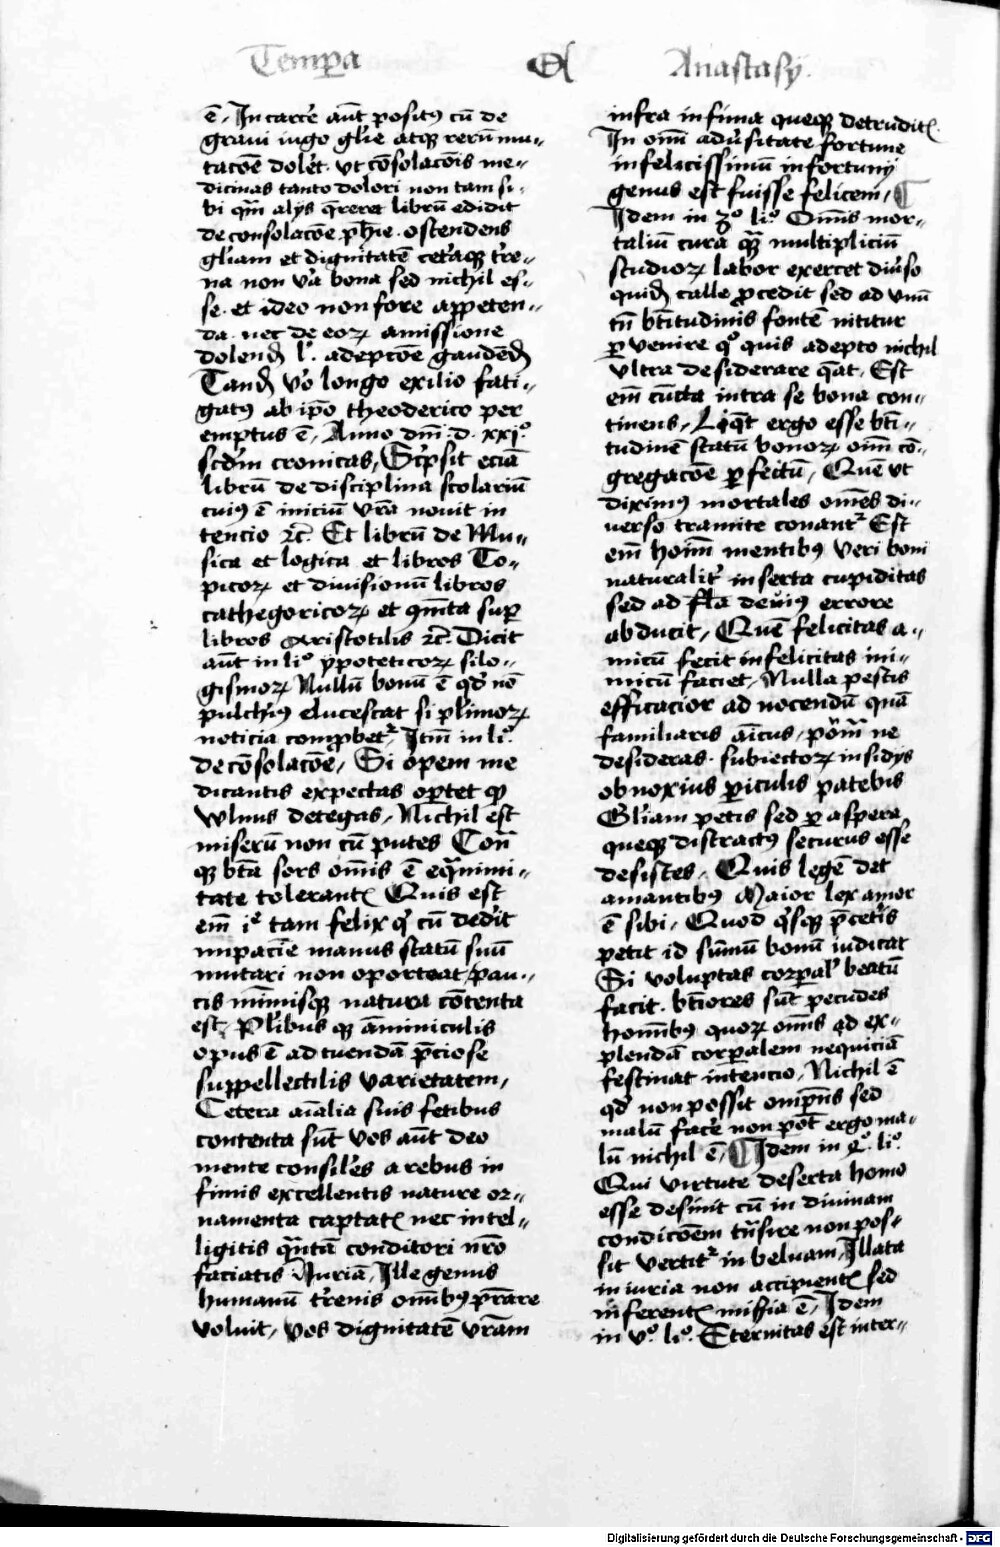 Tempa Et Anastasy.
ē. In carcē aūt positꝰ cū de
graui iugo gl̄ie atqꝫ rerū mu-
tacōe dolēt. vt cōsolacōis me-
dicinas tanto dolori non tam si-
bi qm̄ alijs q̄reret librū edidit
de consolacōe ph̄ie. ostendens
gl̄iam et dignitatē cet̄aqꝫ t̄re-
na non v̄a bona sed nichil es-
se. et ideo non fore appeten-
da. nec de eoꝝ amissione
dolend̄ l' adepcōe gaudēd̄
Tand̄ v̄o longo exilio fati-
gatꝰ ab ip̄o theoderico per
emptus ē. Anno dm̄. d. xxj.º
scd̄m cronicas. Sc̄psit eciā
librū de disciplina scolariū
cuiꝰ ē iniciū vr̄a nouit in
tencio ⁊c̄. Et librū de Mu-
sica et logica et libros To-
picoꝝ et divisionū libros
cathegoricoꝝ et qm̄ta sup̄
libros Aristotilis ⁊c̄. Dicit
aūt in liº ypoteticoꝝ silo-
gismoꝝ Nullū bonū ē qd̄ nō
pulchriꝰ elucescat si pl̄imoꝝ
noticia comꝓbet². Itm̄ in liº.
de cōsolacōe. Si opem me
dicantis expectas oꝑtet qꝫ
wlnus detegas. Nichil est
miserū non cū putes Con̄
qꝫ bt̄a sors om̄is ē eq̄nimi-
tate tolerantꝭ Quis est
em̄ i² tam felix q' cū dedit
impaciē manus statū suū
mutari non oporteat pau-
cis mīmisqꝫ natura cōtenta
est. Pl̄ibus qꝫ āminiculis
opus ē ad tuendā p̄ciose
suppellectilis varietatem.
Cetera aīalia suis fetibus
contenta sūt vos aūt deo
mente consil̄es a rebus in
fimis excellentis nature or-
namenta captatꝭ nec intel-
ligitis q̄ntā conditori nr̄o
faciatis Iuriā. Ille genus
humanū t̄renis om̄ibꝰ p̄rare
voluit. Vos dignitatē vr̄am
infra infima queqꝫ detruditꝭ.
In om̄i adūsitate fortune
infelicissimū infortunij
genus est fuisse felicem. ¶
Idem in 3º liº. Om̄is mor-
taliū cura qm̄ multipliciū
studioꝝ labor exercet diūso
quid̄ calle ꝓcedit sed ad vnū
tn̄ bt̄itudinis fontē nititur
ꝑvenire qº quis adepto nichil
vltra desiderare q̄at. Est
em̄ cūcta intra se bona con-
tinens. Liq̄t ergo esse bt̄i-
tudinē statū bonoꝝ om̄i cō-
gregacōe ꝑfectū. Quē vt
diximꝰ mortales om̄es di-
verso tramite conant² Est
em̄ hom̄ mentibꝰ veri boni
naturalit̄ inserta cupiditas
sed ad fl̄a deviꝰ errore
abducit. Quē felicitas a-
micū fecit infelicitas ini-
micū faciet. Nulla pestis
efficacior ad nocendū quā
familiaris aīcus. pōm̄ ne
desideras. subiectoꝝ insidijs
obnoxius ꝑiculis patebis
Gl̄iam petis sed ꝑ aspera
queqꝫ distractꝰ securus esse
desistes. Quis legē det
amantibꝰ Maior lex amor
ē sibi. Quod q'sqꝫ p̄cet̄is
petit id sūmū bonū iudicat
Si voluptas corꝑal' beatū
facit. bt̄iores sūt pecudes
hom̄ibꝰ quoꝝ om̄is ad ex-
plendā corꝑalem nequiciā
festinat intencio. Nichil ē
qd̄ non possit omp̄ns sed
malū facē non pōt ergo ma-
lū nichil ē. ¶ Idem in 4º. liº.
Qui virtute deserta homo
esse desinit cū in divinam
condicōem tn̄sire non pos-
sit vertit² in beluam. Illata
iniuria non accipientꝭ sed
inferentꝭ mis̄ia ē. Idem
in vº. liº. Eternitas est inter-
Digitalisierung gefördert durch die Deutsche Forschungsgemeinschaft - DFG